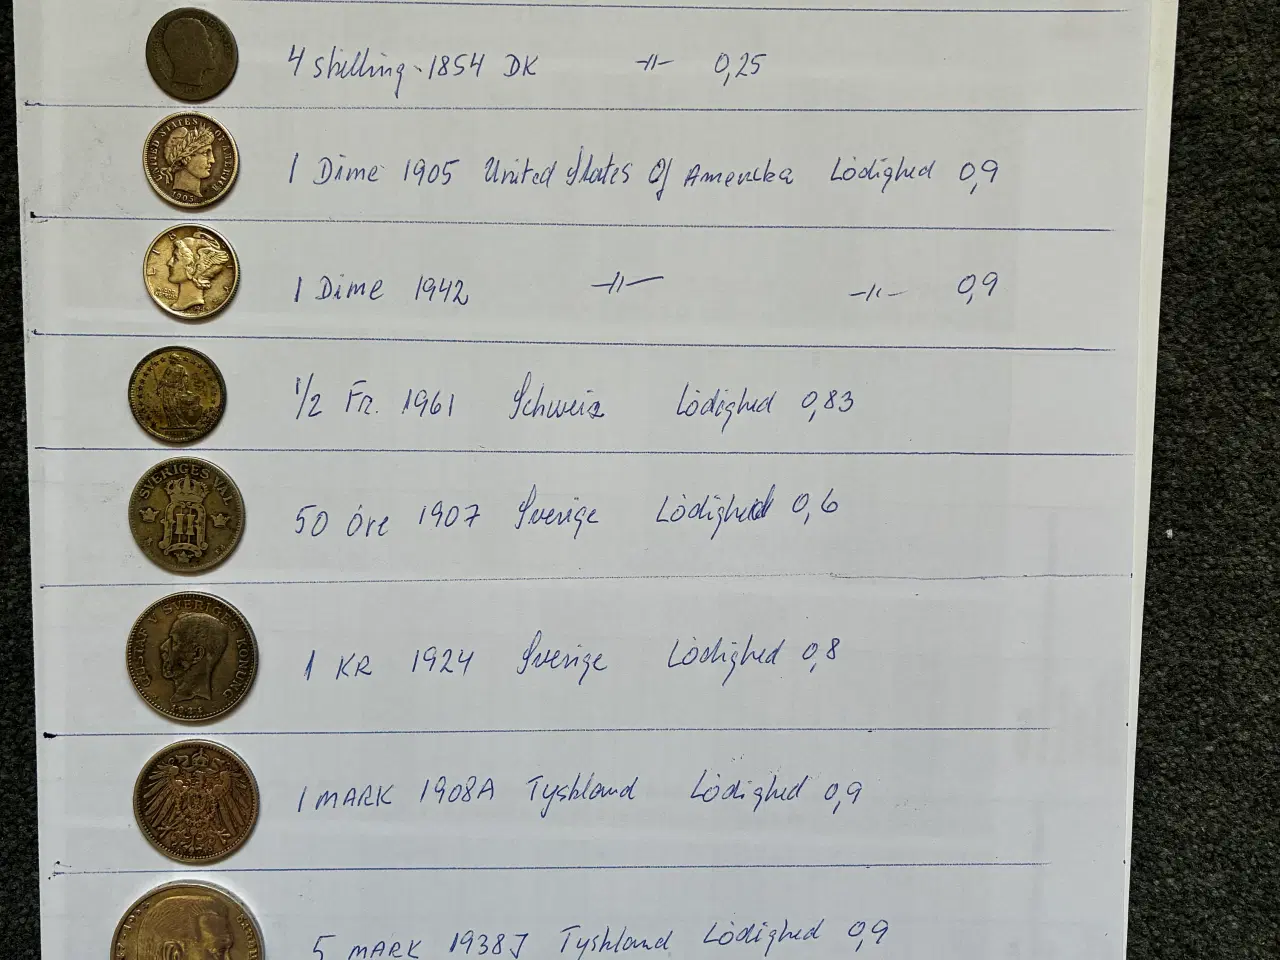 4 skilling 1854 DK -||- 0,25
UNITED STATES OF AMERICA
1905
1 Dime 1905 United States Of Amerika Lödighed 0,9
1 Dime 1942 -||- -||- 0,9
1/2 Fr. 1961 Schweiz Lödighed 0,83
SVERIGES VÄL
50 öre 1907 Sverige Lödighed 0,6
GUSTAF V SVERIGES KONUNG
1924
1 KR 1924 Sverige Lödighed 0,8
1 MARK 1908A Tyskland Lödighed 0,9
5 MARK 1938J Tyskland Lödighed 0,9